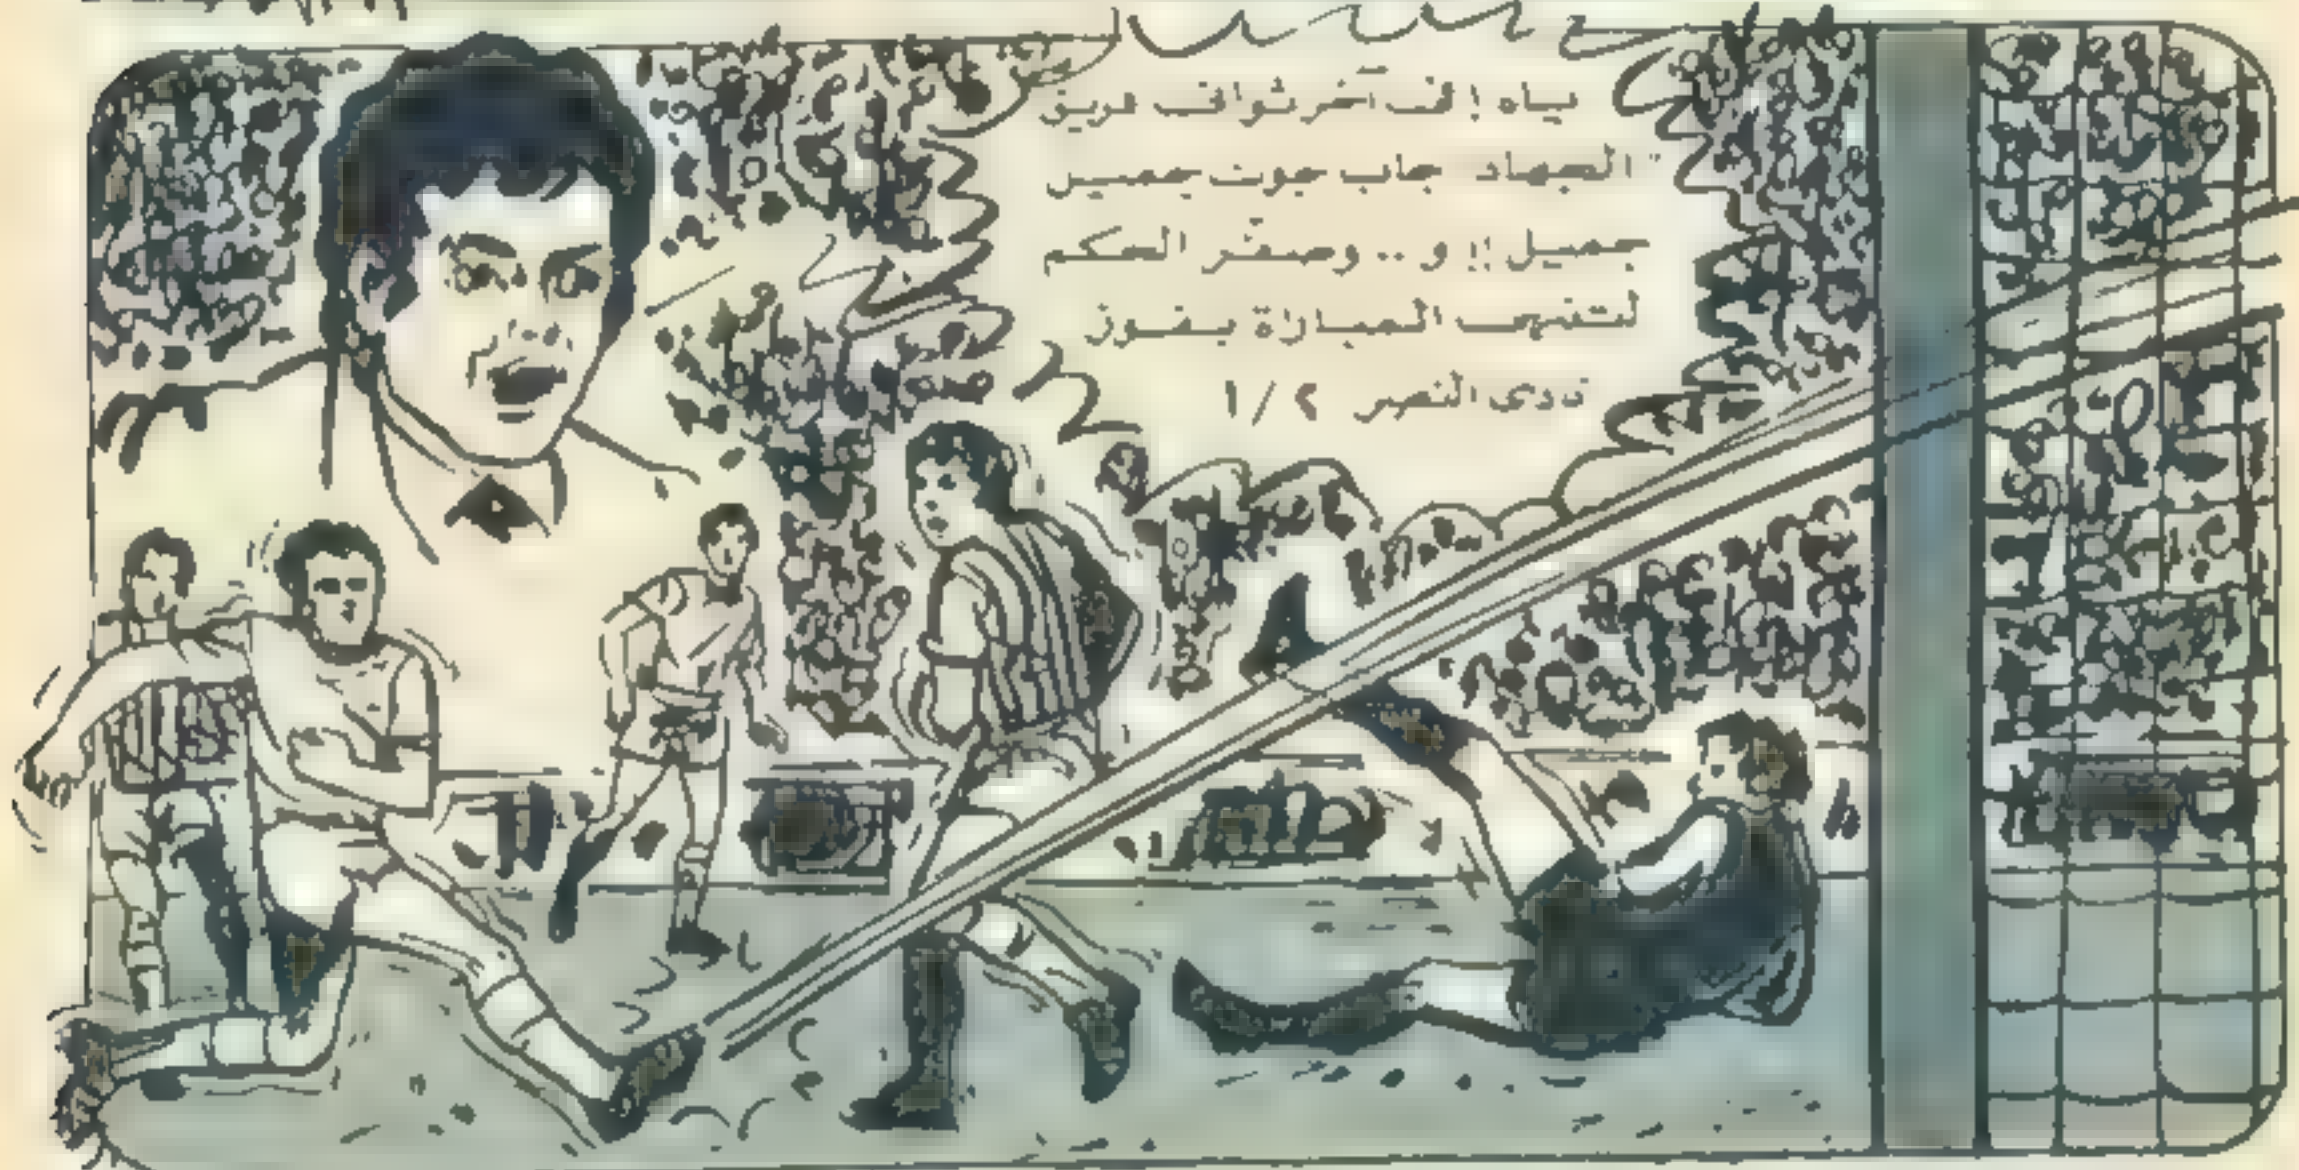 ياه ! فى آخر ثوانى فريق
الجهاد جاب جون جميل
جميل !! و .. وصفّر الحكم
لتنتهى المباراة بفوز
نادى النصر ٢ / ١